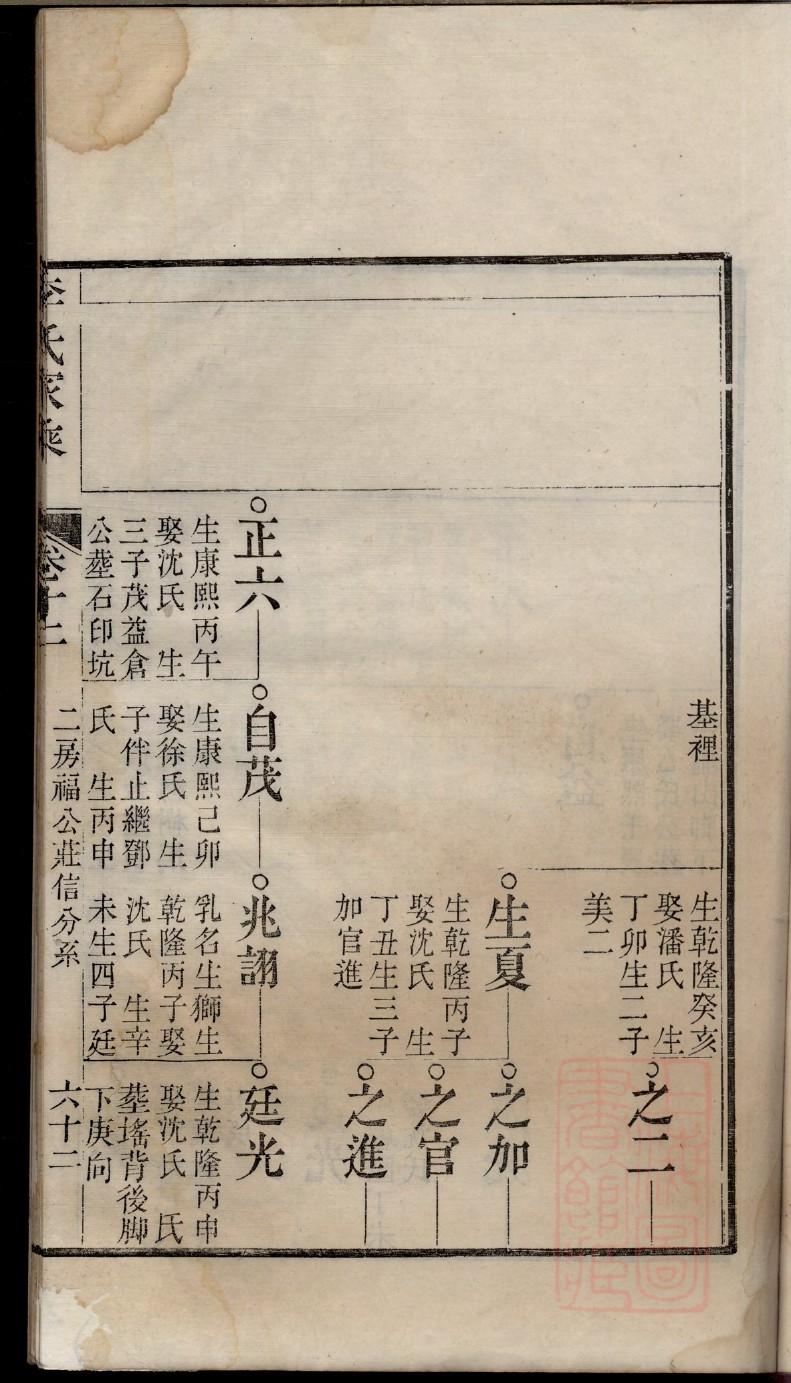 基裡
生乾隆癸亥
娶潘氏　生
丁卯生二子
美二
之二
生夏
生乾隆丙子
娶沈氏　生
丁丑生三子
加官進
之加
之官
之進
正六
生康熙丙午
娶沈氏　生
三子茂益倉
公塟石印坑
自茂
生康熙己卯
娶徐氏　生
子伴止繼鄧
氏　生丙申
兆詡
乳名生獅生
乾隆丙子娶
沈氏　生辛
未生四子廷
廷光
生乾隆丙申
娶沈氏　氏
塟瑤背後脚
下庚向
二房福公莊信分系
六十二
李氏家乘
卷十二